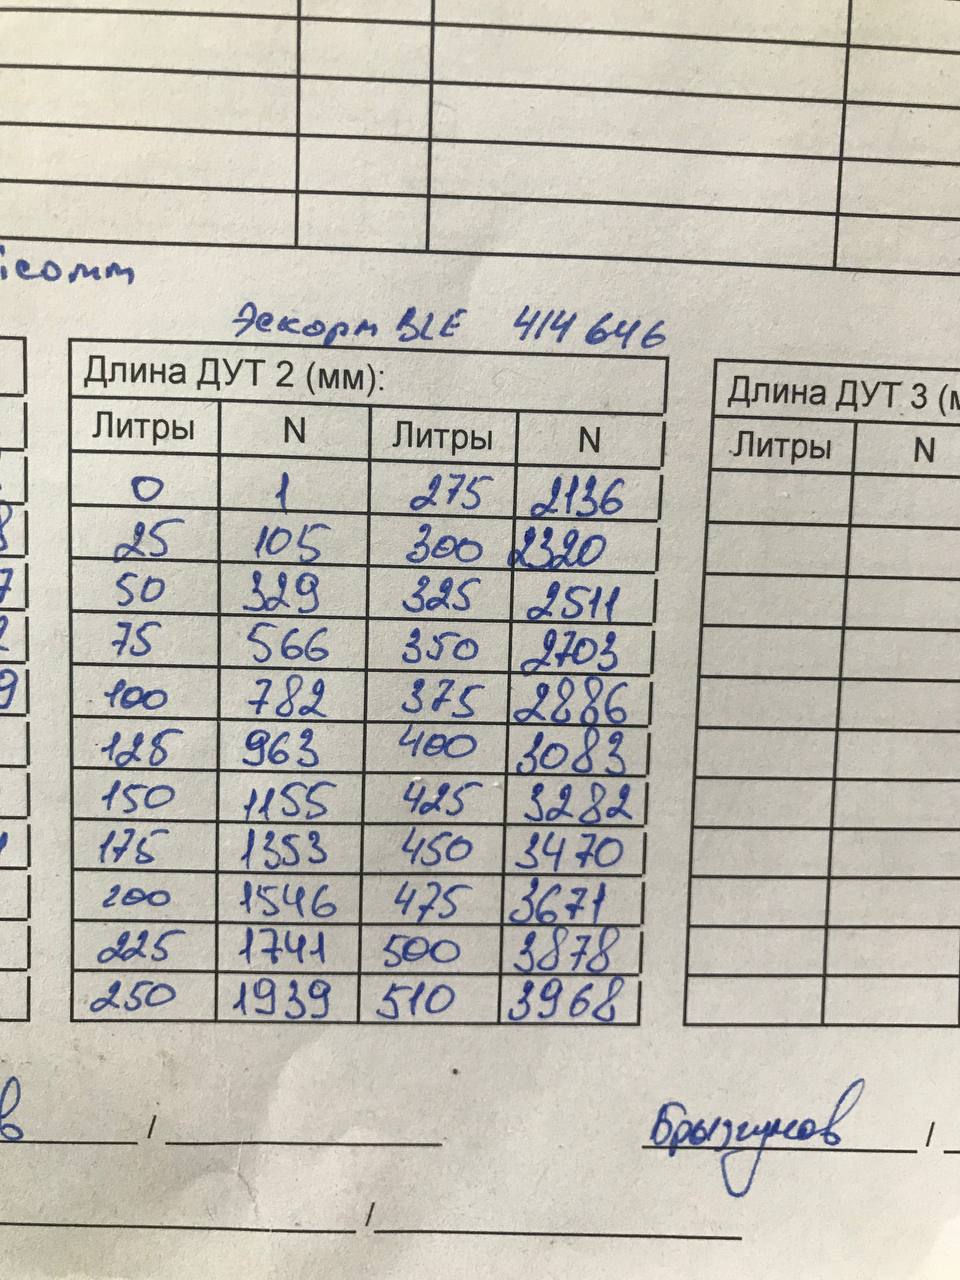 icomm
Эскорт BLE 414646
Длина ДУТ 2 (мм):
Длина ДУТ 3 (м
Литры N Литры N
Литры N
0 1 275 2136
8 25 105 300 2320
7 50 329 325 2511
2 75 566 350 2703
9 100 782 375 2886
125 963 400 3083
150 1155 425 3282
1 175 1353 450 3470
200 1546 475 3671
225 1741 500 3878
250 1939 510 3968
в / Брызгунов /
/